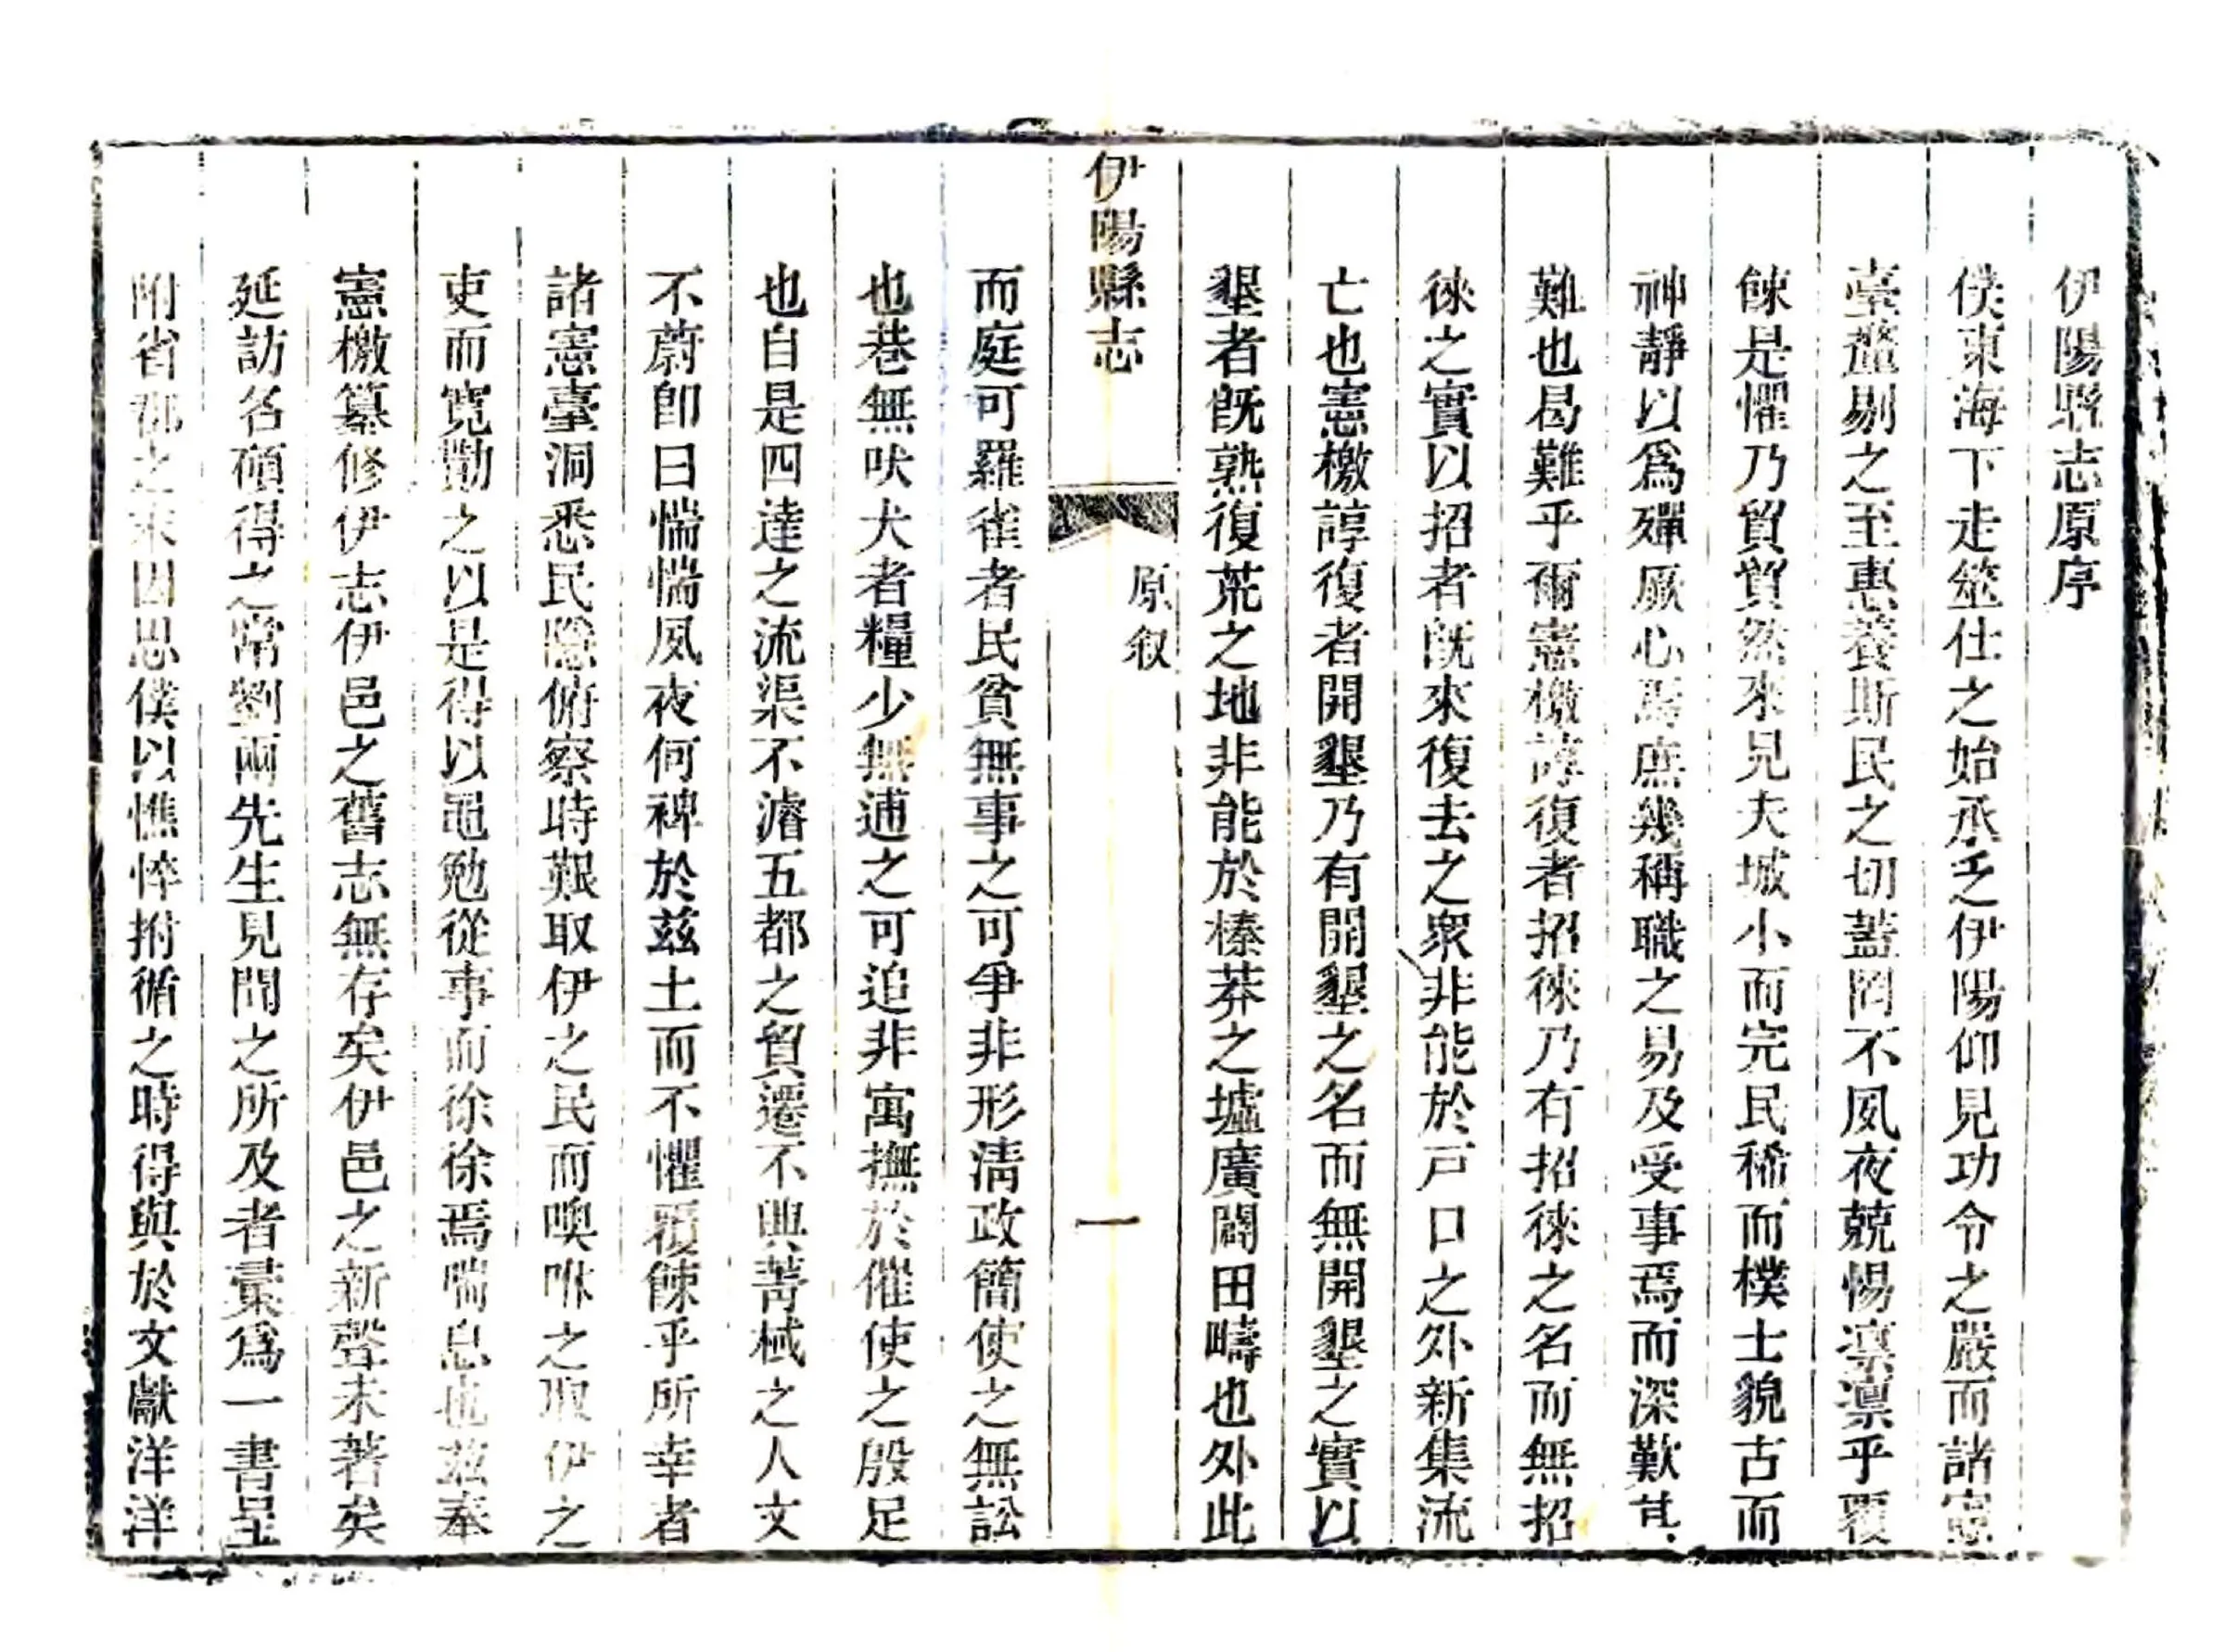 伊陽縣志原序
僕東海下走筮仕之始承乏伊陽仰見功令之嚴而諸憲
臺釐剔之至惠養斯民之切蓋罔不夙夜兢惕凛凛乎覆
餗是懼乃貿貿然來見夫城小而完民稀而樸士貌古而
神靜以爲殫厥心焉庶幾稱職之易及受事焉而深歎其
難也曷難乎爾憲檄諄復者招徠乃有招徠之名而無招
徠之實以招者旣來復去之衆非能於戸口之外新集流
亡也憲檄諄復者開墾乃有開墾之名而無開墾之實以
墾者旣熟復荒之地非能於榛莽之墟廣闢田疇也外此
伊陽縣志
原叙
一
而庭可羅雀者民貧無事之可爭非形淸政簡使之無訟
也巷無吠犬者糧少無逋之可追非寓撫於催使之殷足
也自是四達之流渠不濬五都之貿遷不興菁棫之人文
不蔚卽曰惴惴夙夜何裨於兹土而不懼覆餗乎所幸者
諸憲臺洞悉民隱俯察時艱取伊之民而噢咻之取伊之
吏而寛勩之以是得以黽勉從事而徐徐焉喘息也兹奉
憲檄纂修伊志伊邑之舊志無存矣伊邑之新聲未著矣
延訪名碩得之常劉兩先生見聞之所及者彚爲一書呈
附省郡之末因思僕以憔悴拊循之時得與於文獻洋洋